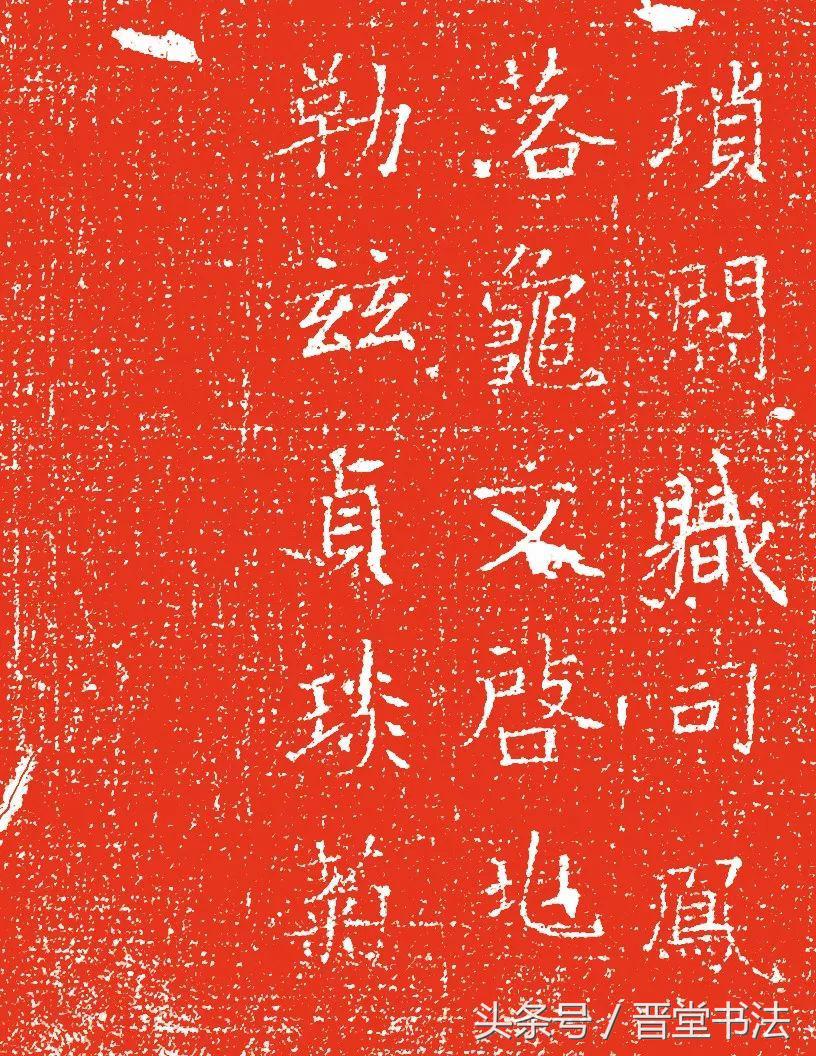 瑣職司鳳
落龜文啓地
勒茲貞琰菊
头条号 / 晋堂书法